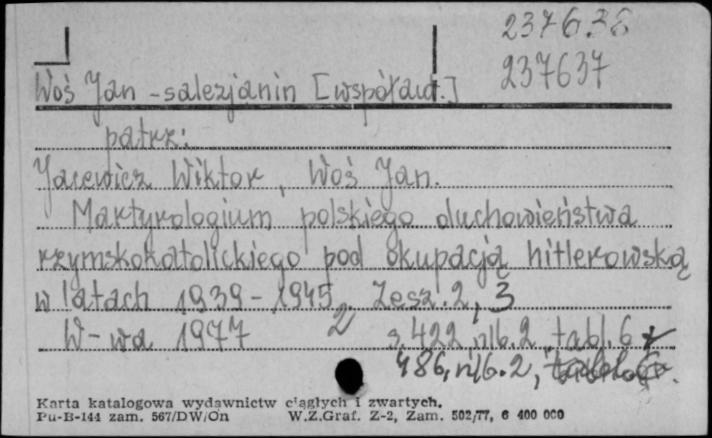 237638
237637
Woś Jan - salezjanin [współaut.]
patrz:
Jacewicz Wiktor, Woś Jan.
Martyrologium polskiego duchowieństwa
rzymskokatolickiego pod okupacją hitlerowską
w latach 1939-1945. Zesz. 2, 3
W-wa 1977 2 s. 422, nlb. 2, tabl. 6
486, nlb. 2,
Karta katalogowa wydawnictw ciągłych i zwartych.
Pu-B-144 zam. 567/DW/On W.Z.Graf. Z-2, Zam. 502/77, 6 400 000